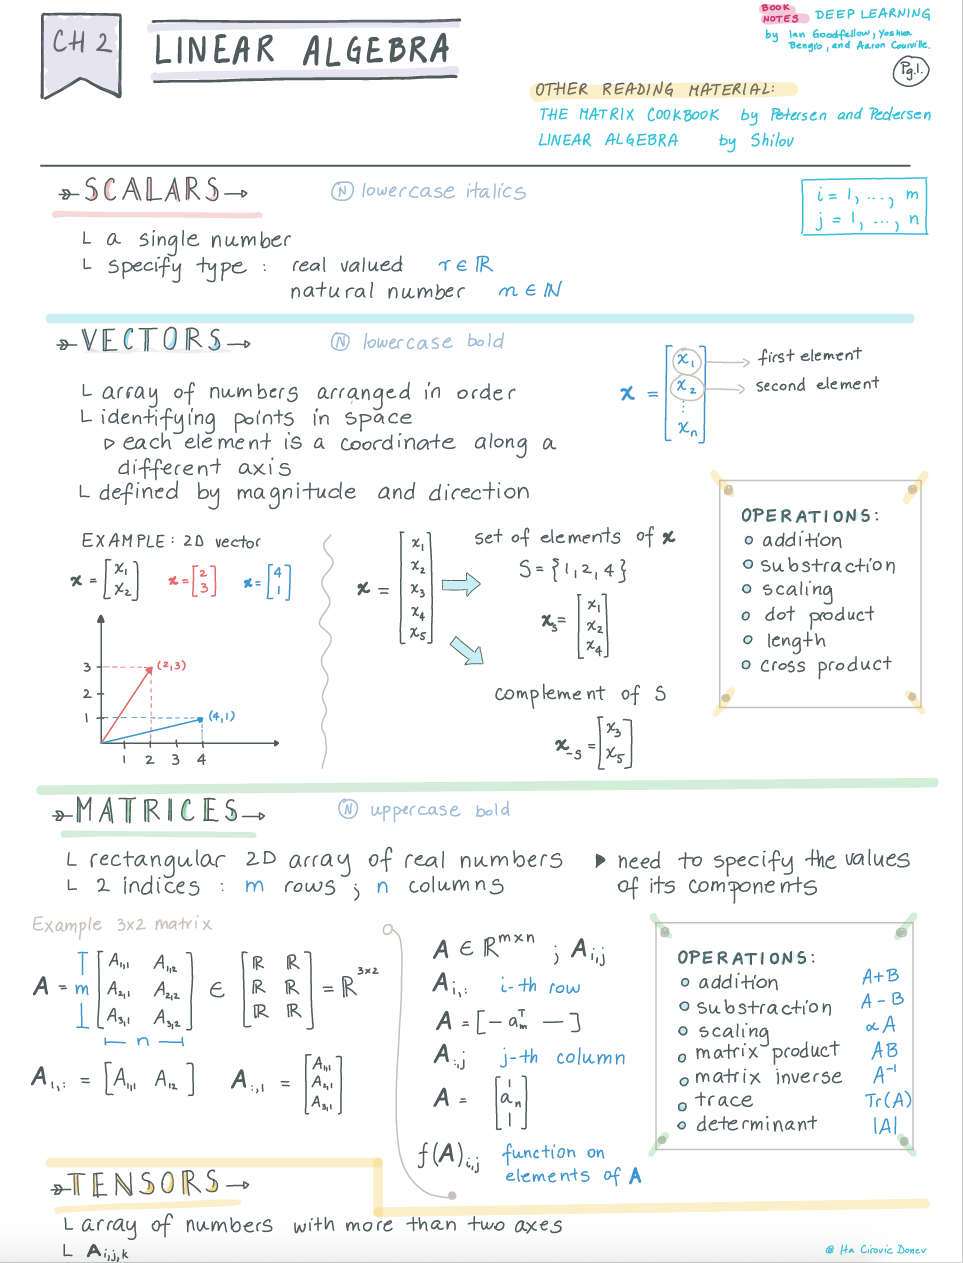 CH 2
LINEAR ALGEBRA
BOOK NOTES DEEP LEARNING
by Ian Goodfellow, Yoshua
Bengio, and Aaron Courville.
Pg.1.
OTHER READING MATERIAL:
THE MATRIX COOKBOOK by Petersen and Pedersen
LINEAR ALGEBRA by Shilov
SCALARS
Ⓝ lowercase italics
i = 1, ..., m
j = 1, ..., n
└ a single number
└ specify type : real valued r ∈ ℝ
natural number n ∈ ℕ
VECTORS
Ⓝ lowercase bold
└ array of numbers arranged in order
└ identifying points in space
▷ each element is a coordinate along a
different axis
└ defined by magnitude and direction
x = [x₁ x₂ ⋮ xₙ]
first element
second element
EXAMPLE: 2D vector
x = [x₁ x₂] x = [2 3] x = [4 1]
3
2
1
1 2 3 4
(2,3)
(4,1)
x = [x₁ x₂ x₃ x₄ x₅]
set of elements of x
S = {1, 2, 4}
xₛ = [x₁ x₂ x₄]
complement of S
x₋ₛ = [x₃ x₅]
OPERATIONS:
addition
substraction
scaling
dot product
length
cross product
MATRICES
Ⓝ uppercase bold
└ rectangular 2D array of real numbers
└ 2 indices : m rows ; n columns
▶ need to specify the values
of its components
Example 3x2 matrix
A = m [A1,1 A1,2
A2,1 A2,2
A3,1 A3,2] ∈ [ℝ ℝ
ℝ ℝ
ℝ ℝ] = ℝ3x2
n
A1,: = [A1,1 A12] A:,1 = [A1,1 A2,1 A3,1]
A ∈ ℝm×n ; Ai,j
Ai,: i-th row
A = [— aᵀm —]
A:,j j-th column
A = [| an |]
f(A)i,j function on
elements of A
OPERATIONS:
addition A+B
substraction A-B
scaling ∝A
matrix product AB
matrix inverse A⁻¹
trace Tr(A)
determinant |A|
TENSORS
└ array of numbers with more than two axes
└ Ai,j,k
@ Ha Cirovic Donev